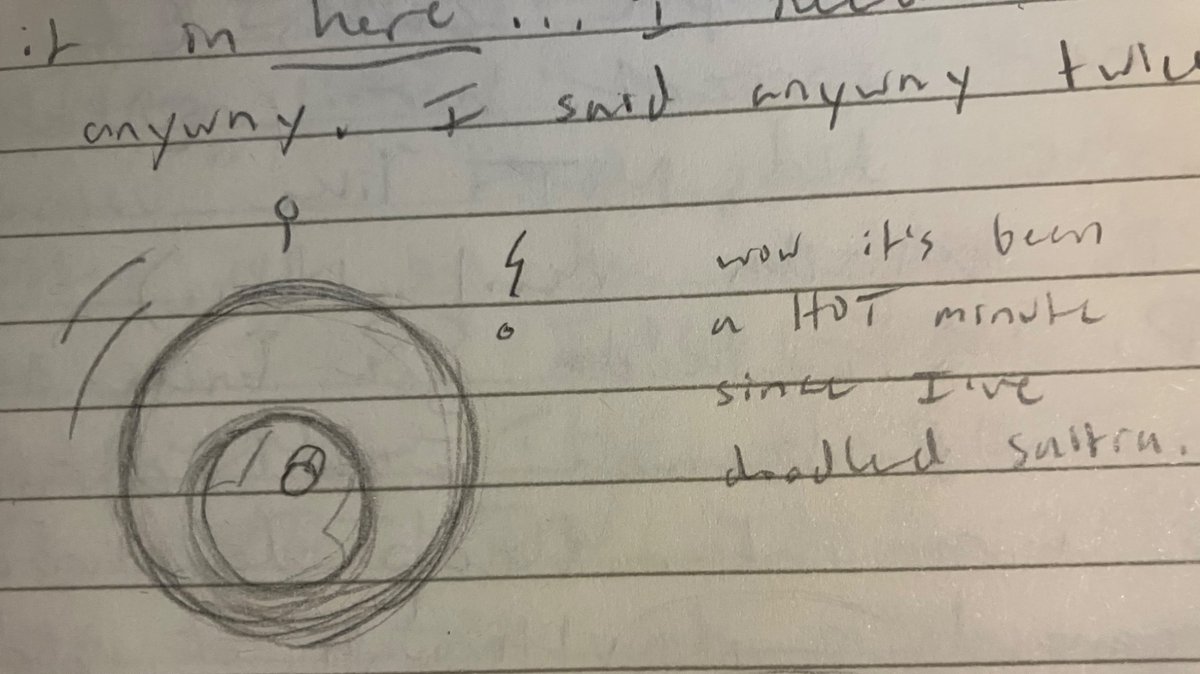 it in here ... I
anyway. I said anyway twic
wow it's been
a HOT minute
since I've
doodled saltra.